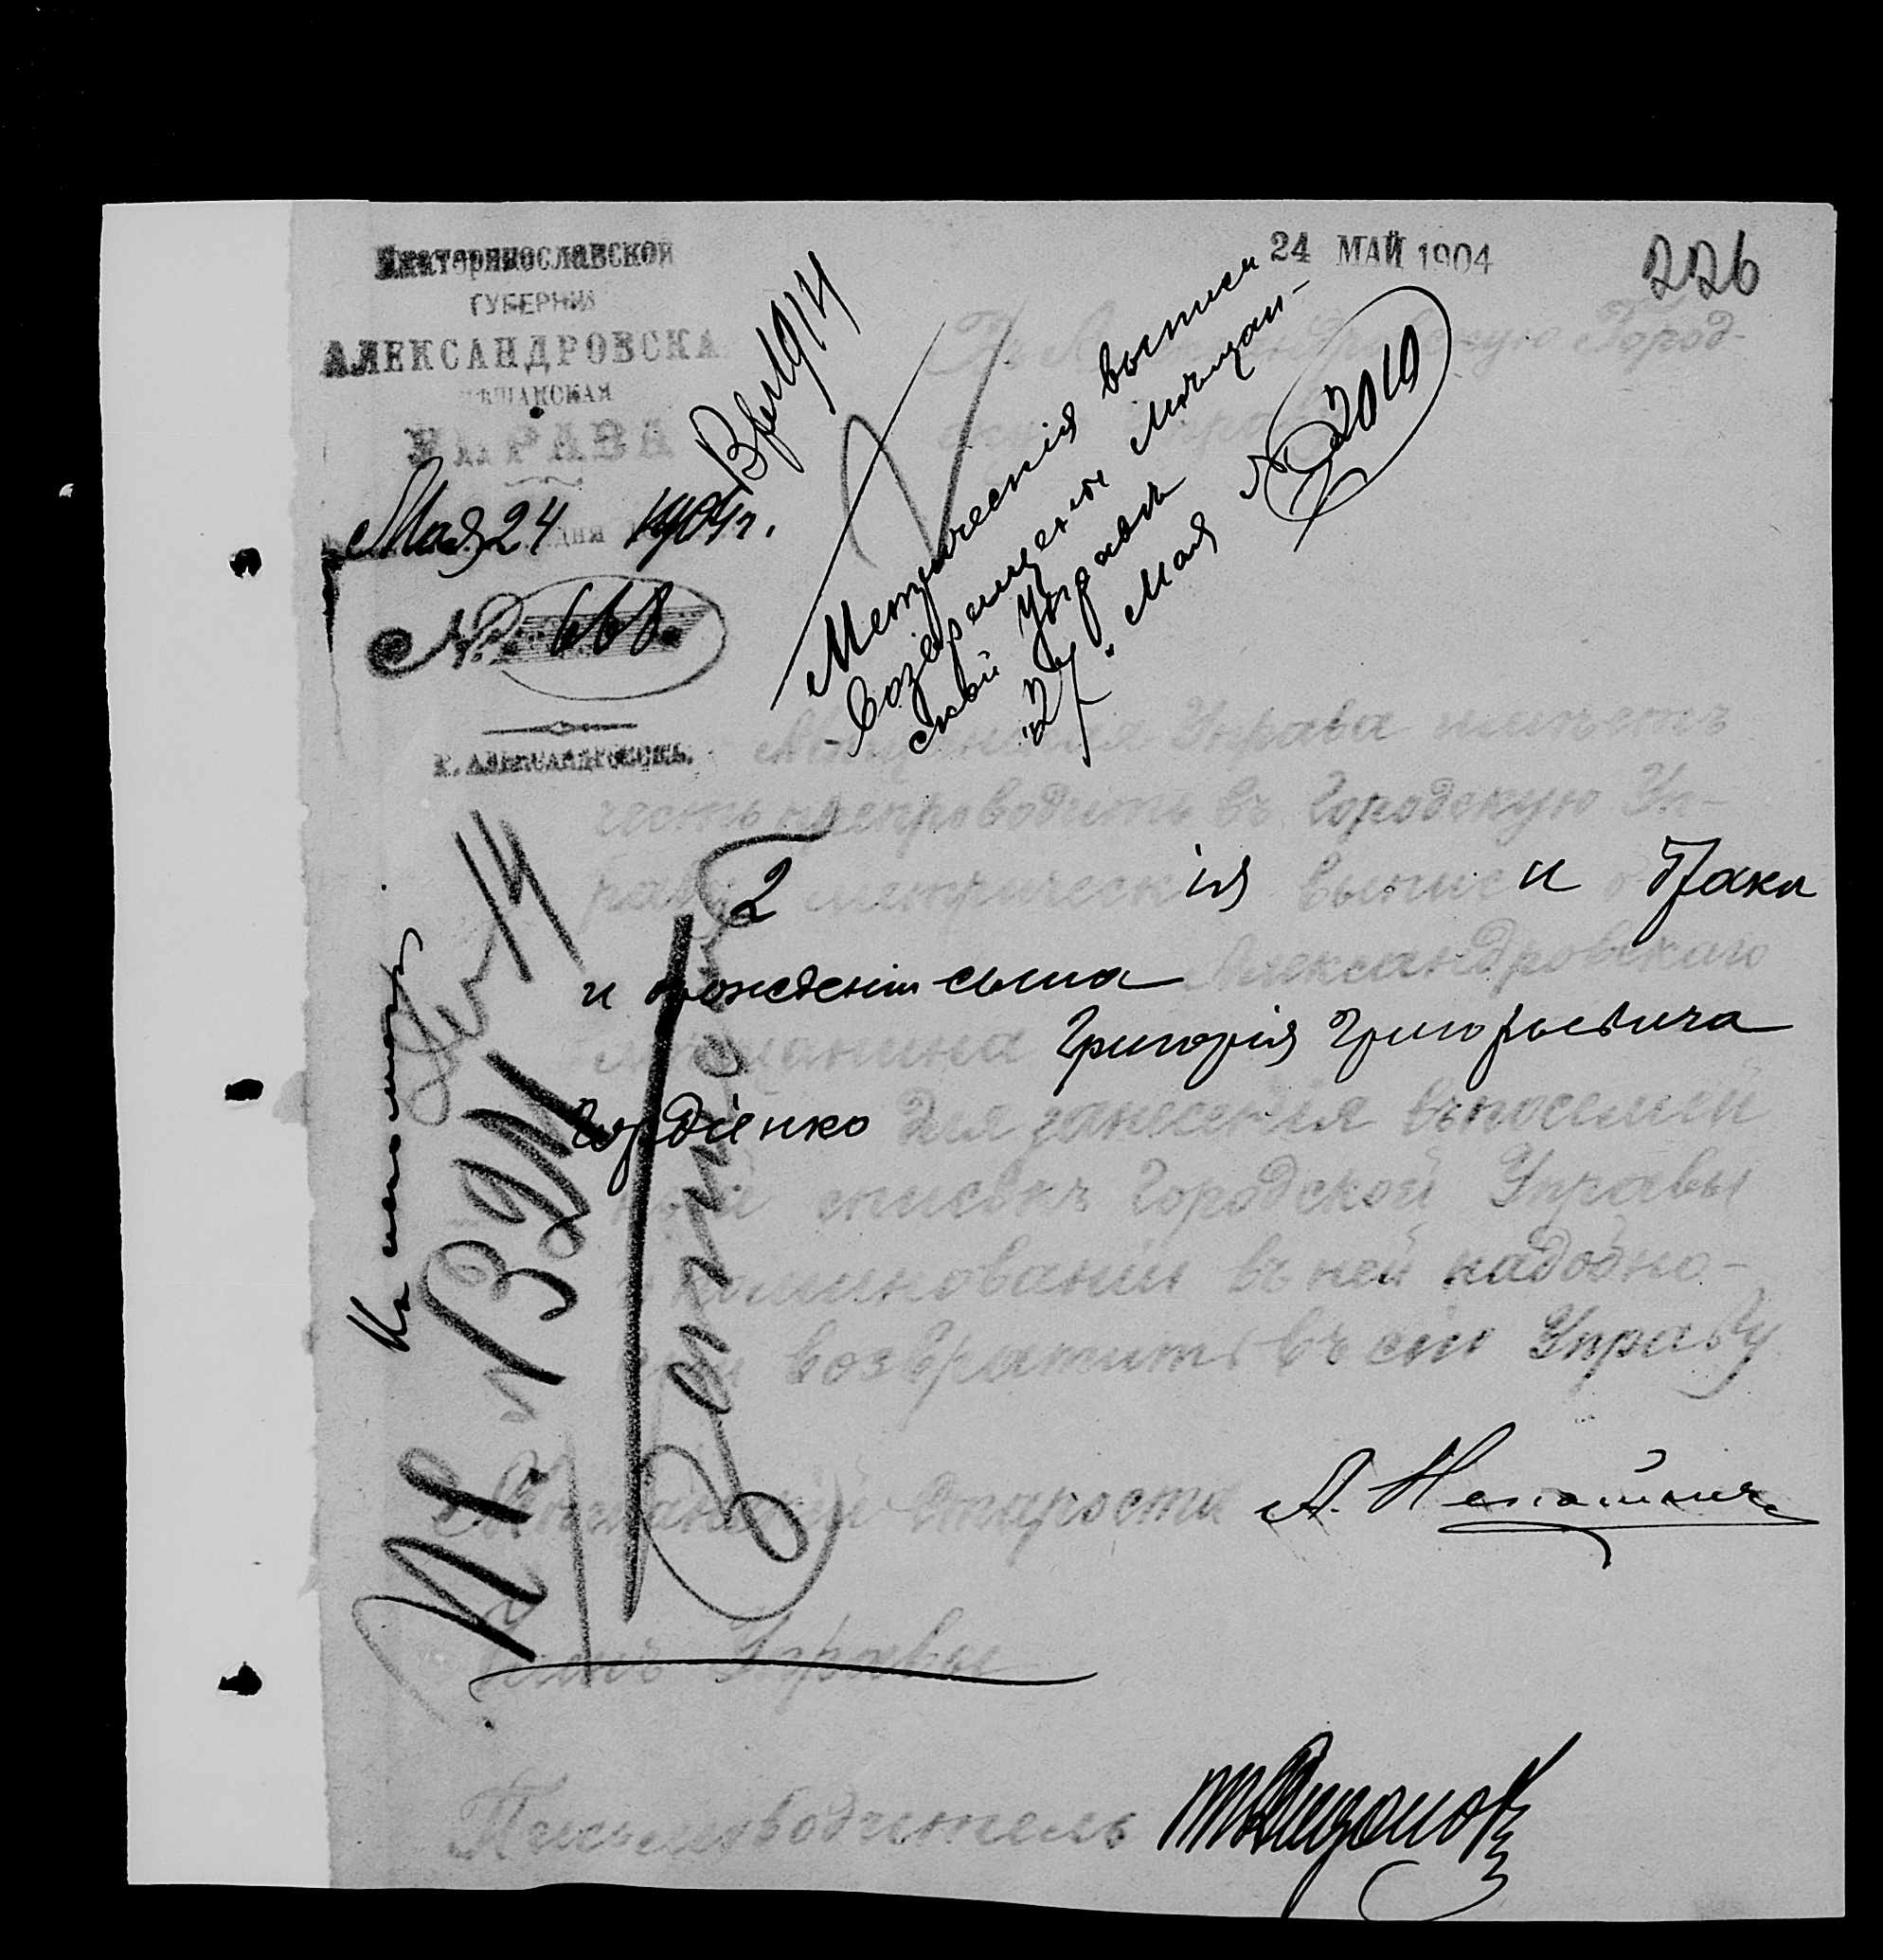 Екатеринославской
ГУБЕРНИИ
АЛЕКСАНДРОВСКА
МѢЩАНСКАЯ
УПРАВА
Мая 24 дня 1904 г.
№ 668.
г. Александровскъ.
24 МАЙ 1904
226
Въ Александровскую Город-
скую Управу
Метрическія выписи
возвращены Мѣщан-
ской Управѣ
27. Мая № 2010
Мѣщанская Управа имѣетъ
честь препроводить въ Городскую Уп-
раву 2 метрическія выписи о бракѣ
и рожденіи сына Александровскаго
мѣщанина Григорія Григорьевича
Гордіенко для занесенія въ посемей
ный списокъ Городской Управы
и по минованіи въ ней надобно-
сти возвратить въ сію Управу
Мѣщанскій Староста А.
Членъ Управы
Письмоводитель